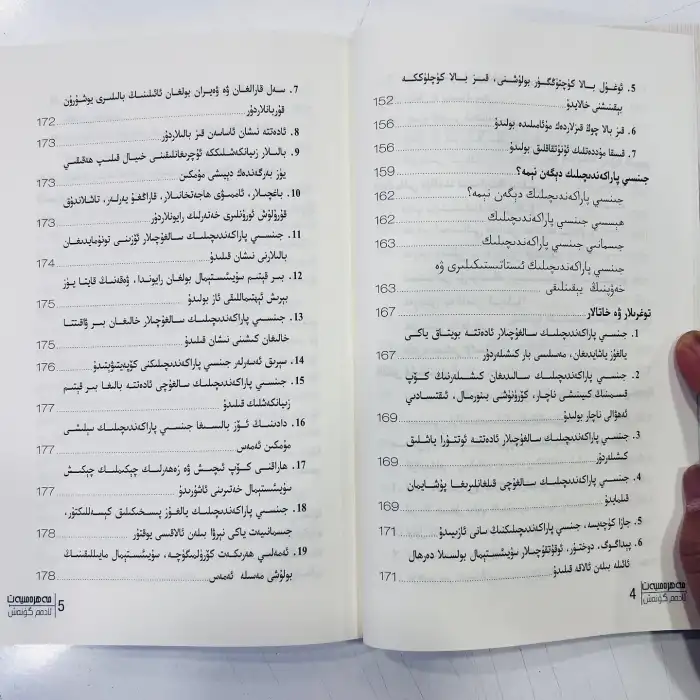 5. ئوغۇل بالا كۈچتۈڭگۈر بولۇشنى، قىز بالا كۈچلۈككە
بېقىنىشنى خالايدۇ 152
6. قىز بالا چوڭ قىزلاردەك مۇئامىلىدە بولىدۇ 156
7. قىسقا مۇددەتلىك ئۇنتۇقاقلىق بولىدۇ 156
جىنسىي پاراكەندىچىلىك دېگەن نېمە؟ 159
جىنسىي پاراكەندىچىلىك دېگەن نېمە؟ 162
ھېسسىي جىنسىي پاراكەندىچىلىك 162
جىسمانىي جىنسىي پاراكەندىچىلىك 163
جىنسىي پاراكەندىچىلىك ئىستاتىستىكىلىرى ۋە
خەۋپنىڭ يېقىنلىقى 163
توغرىلار ۋە خاتالار 167
1. جىنسىي پاراكەندىچىلىك سالغۇچىلار ئادەتتە بويتاق ياكى
يالغۇز ياشايدىغان، مەسىلىسى بار كىشىلەردۇر 167
2. جىنسىي پاراكەندىچىلىك سالىدىغان كىشىلەرنىڭ كۆپ
قىسمىنىڭ كىيىنىشى ناچار، كۆرۈنۈشى بىنورمال، ئىقتىسادىي
ئەھۋالى ناچار بولىدۇ 169
3. جىنسىي پاراكەندىچىلىك سالغۇچىلار ئادەتتە ئوتتۇرا ياشلىق
كىشىلەردۇر 169
4. جىنسىي پاراكەندىچىلىك سالغۇچى قىلغانلىرىغا پۇشايمان
قىلمايدۇ 169
5. جازا كۈچەيسە، جىنسىي پاراكەندىچىلىكنىڭ سانى ئازىيىدۇ 171
6. پېداگوگ، دوختۇر، ئوقۇتقۇچىلار سۇيىئىستېمال بولسىلا دەرھال
ئائىلە بىلەن ئالاقە قىلىدۇ 171
4
مەھرەمىيەت
ئادەم گۈنەش
7. سەل قارالغان ۋە ۋەيران بولغان ئائىلىنىڭ بالىلىرى يوشۇرۇن
قۇربانلاردۇر 172
8. ئادەتتە نىشان ئاساسەن قىز بالىلاردۇر 173
9. بالىلار زىيانكەشلىككە ئۇچرىغانلىقىنى خىيال قىلىپ ھەقىقىي
يۈز بەرگەندەك دېيىشى مۇمكىن 173
10. باغچىلار، ئاممىۋى ھاجەتخانىلار، قاراڭغۇ يەرلەر، تاشلاندۇق
قۇرۇلۇش ئورۇنلىرى خەتەرلىك رايونلاردۇر 173
11. جىنسىي پاراكەندىچىلىك سالغۇچىلار ئۆزىنى تونۇمايدىغان
بالىلارنى نىشان قىلىدۇ 174
12. بىر قېتىم سۇيىئىستېمال بولغان رايوندا، ۋەقەنىڭ قايتا يۈز
بېرىش ئېھتىماللىقى ئاز بولىدۇ 175
13. جىنسىي پاراكەندىچىلىك سالغۇچىلار خالىغان بىر ۋاقىتتا
خالىغان كىشىنى نىشان قىلىدۇ 175
14. سېرىق ئەسەرلەر جىنسىي پاراكەندىچىلىكنى كۆپەيتىۋېتىدۇ 176
15. جىنسىي پاراكەندىچىلىك سالغۇچى ئادەتتە بالىغا بىر قېتىم
زىيانكەشلىك قىلىدۇ 177
16. دادىنىڭ ئۆز بالىسىغا جىنسىي پاراكەندىچىلىك سېلىشى
مۇمكىن ئەمەس 177
17. ھاراقنى كۆپ ئىچىش ۋە زەھەرلىك چېكىملىك چېكىش
سۇيىئىستېمال خەتىرىنى ئاشۇرىدۇ 177
18. جىنسىي پاراكەندىچىلىك يالغۇز پسىخىكىلىق كېسەللىكتۇر،
جىسمانىيەت ياكى نېرۋا بىلەن ئالاقىسى يوقتۇر 178
19. ئەمەلىي ھەرىكەت كۆرۈلمىگۈچە، سۇيىئىستېمال مايىللىقىنىڭ
بولۇشى مەسىلە ئەمەس 178
5
مەھرەمىيەت
ئادەم گۈنەش